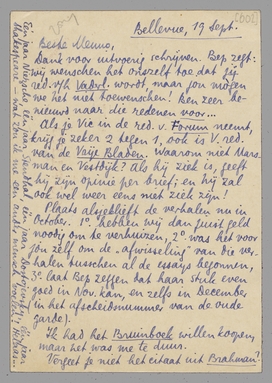 Bellevue, 19 Sept.
Beste Menno,
Dank voor uitvoerig schrijven. Bep zegt:
wij wenschen het ons zelf toe dat jij
red. v/h Vaderl. wordt, maar jou mogen
we het niet toewenschen! Ben zeer be-
nieuwd naar die redenen voor...
Als je Vic in de red. v. Forum neemt,
krijg je zeker 2 tegen 1, ook is V. red.
van de Vrije Bladen. Waarom niet Mars-
man en Vestdijk? Als hij ziek is, geeft
hij zijn opinie per brief; en hij zal
ook wel weer eens niet ziek zijn!
Plaats alsjeblieft de verhalen nu in
October. 1º hebben wij dan juist geld
noodig om te verhuizen, 2º was het voor
jou zelf om de "afwisseling" van die ver-
halen tusschen al de essays begonnen,
3º laat Bep zeggen dat haar stuk even
goed in Nov. kan, en zelfs in December
(in het afscheidsnummer van de oude
garde).
Ik had het Bruinboek willen koopen,
maar het was me te duur.
Vergeet je niet het citaat uit Brahman?
Een jaar Nietzsche, een jaar Stendhal, een jaar Dostojevsky, een jaar
Shakespeare